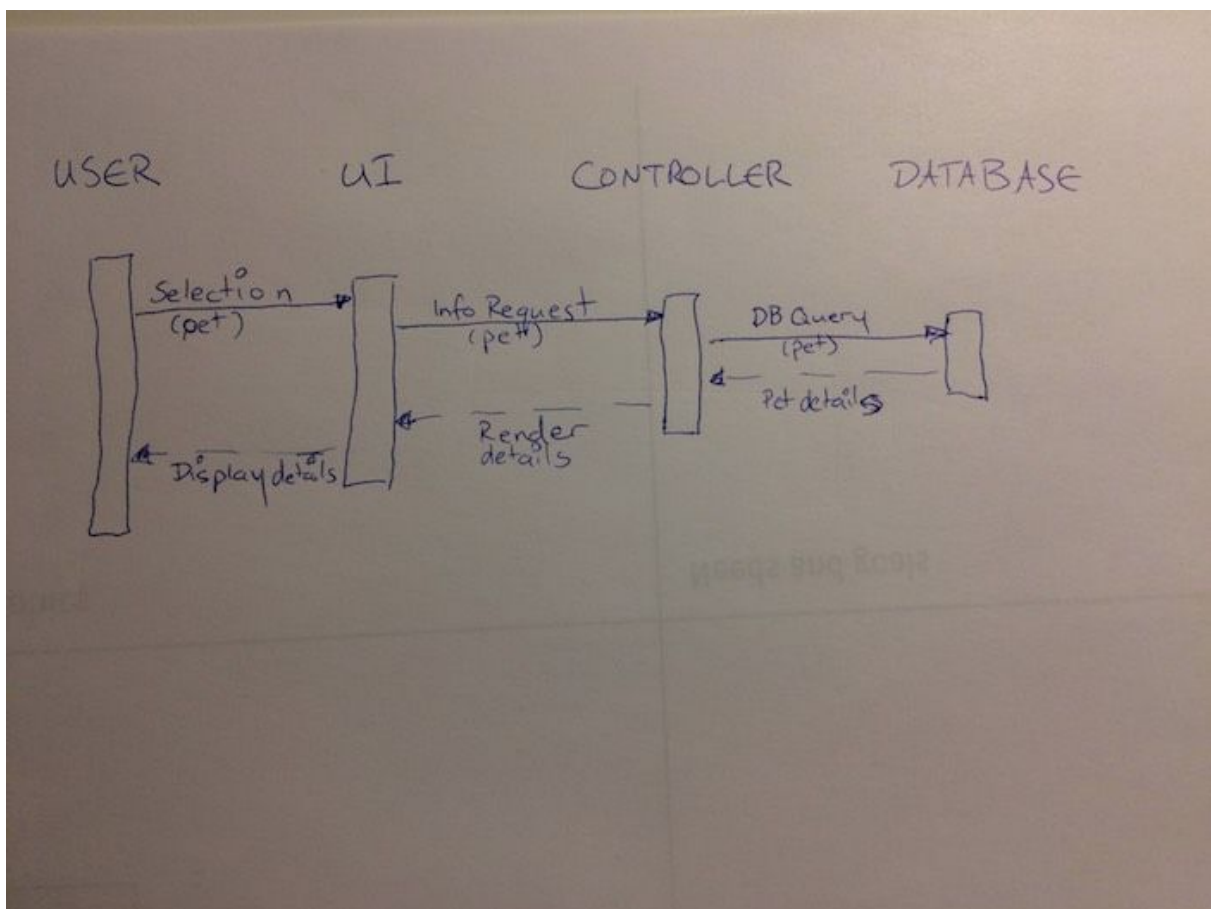 USER UI CONTROLLER DATABASE
Selection
(pet)
Info Request
(pet)
DB Query
(pet)
Pet details
Render
details
Display details
Needs and goals